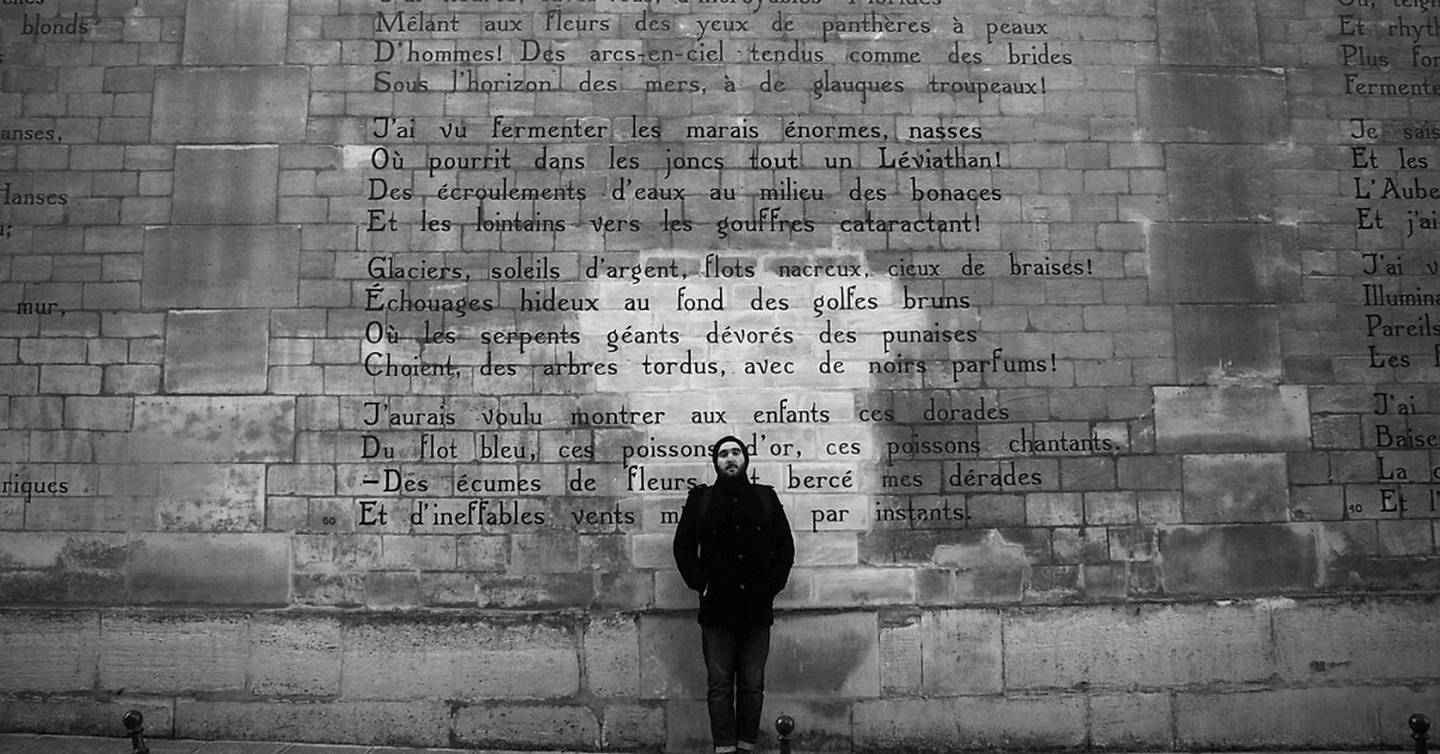 blonds
anses,
lanses
mur,
riques
Mêlant aux fleurs des yeux de panthères à peaux
D'hommes! Des arcs-en-ciel tendus comme des brides
Sous l'horizon des mers, à de glauques troupeaux!
J'ai vu fermenter les marais énormes, nasses
Où pourrit dans les joncs tout un Léviathan!
Des écroulements d'eaux au milieu des bonaces
Et les lointains vers les gouffres cataractant!
Glaciers, soleils d'argent, flots nacreux, cieux de braises!
Échouages hideux au fond des golfes bruns
Où les serpents géants dévorés des punaises
Choient, des arbres tordus, avec de noirs parfums!
J'aurais voulu montrer aux enfants ces dorades
Du flot bleu, ces poissons d'or, ces poissons chantants.
–Des écumes de fleurs bercé mes dérades
60 Et d'ineffables vents m par instants.
Et rhyt
Plus for
Fermente
Je sais
Et les
L'Aube
Et j'ai
J'ai v
Illumina
Pareils
Les f
J'ai
Baise
La
40 Et l'